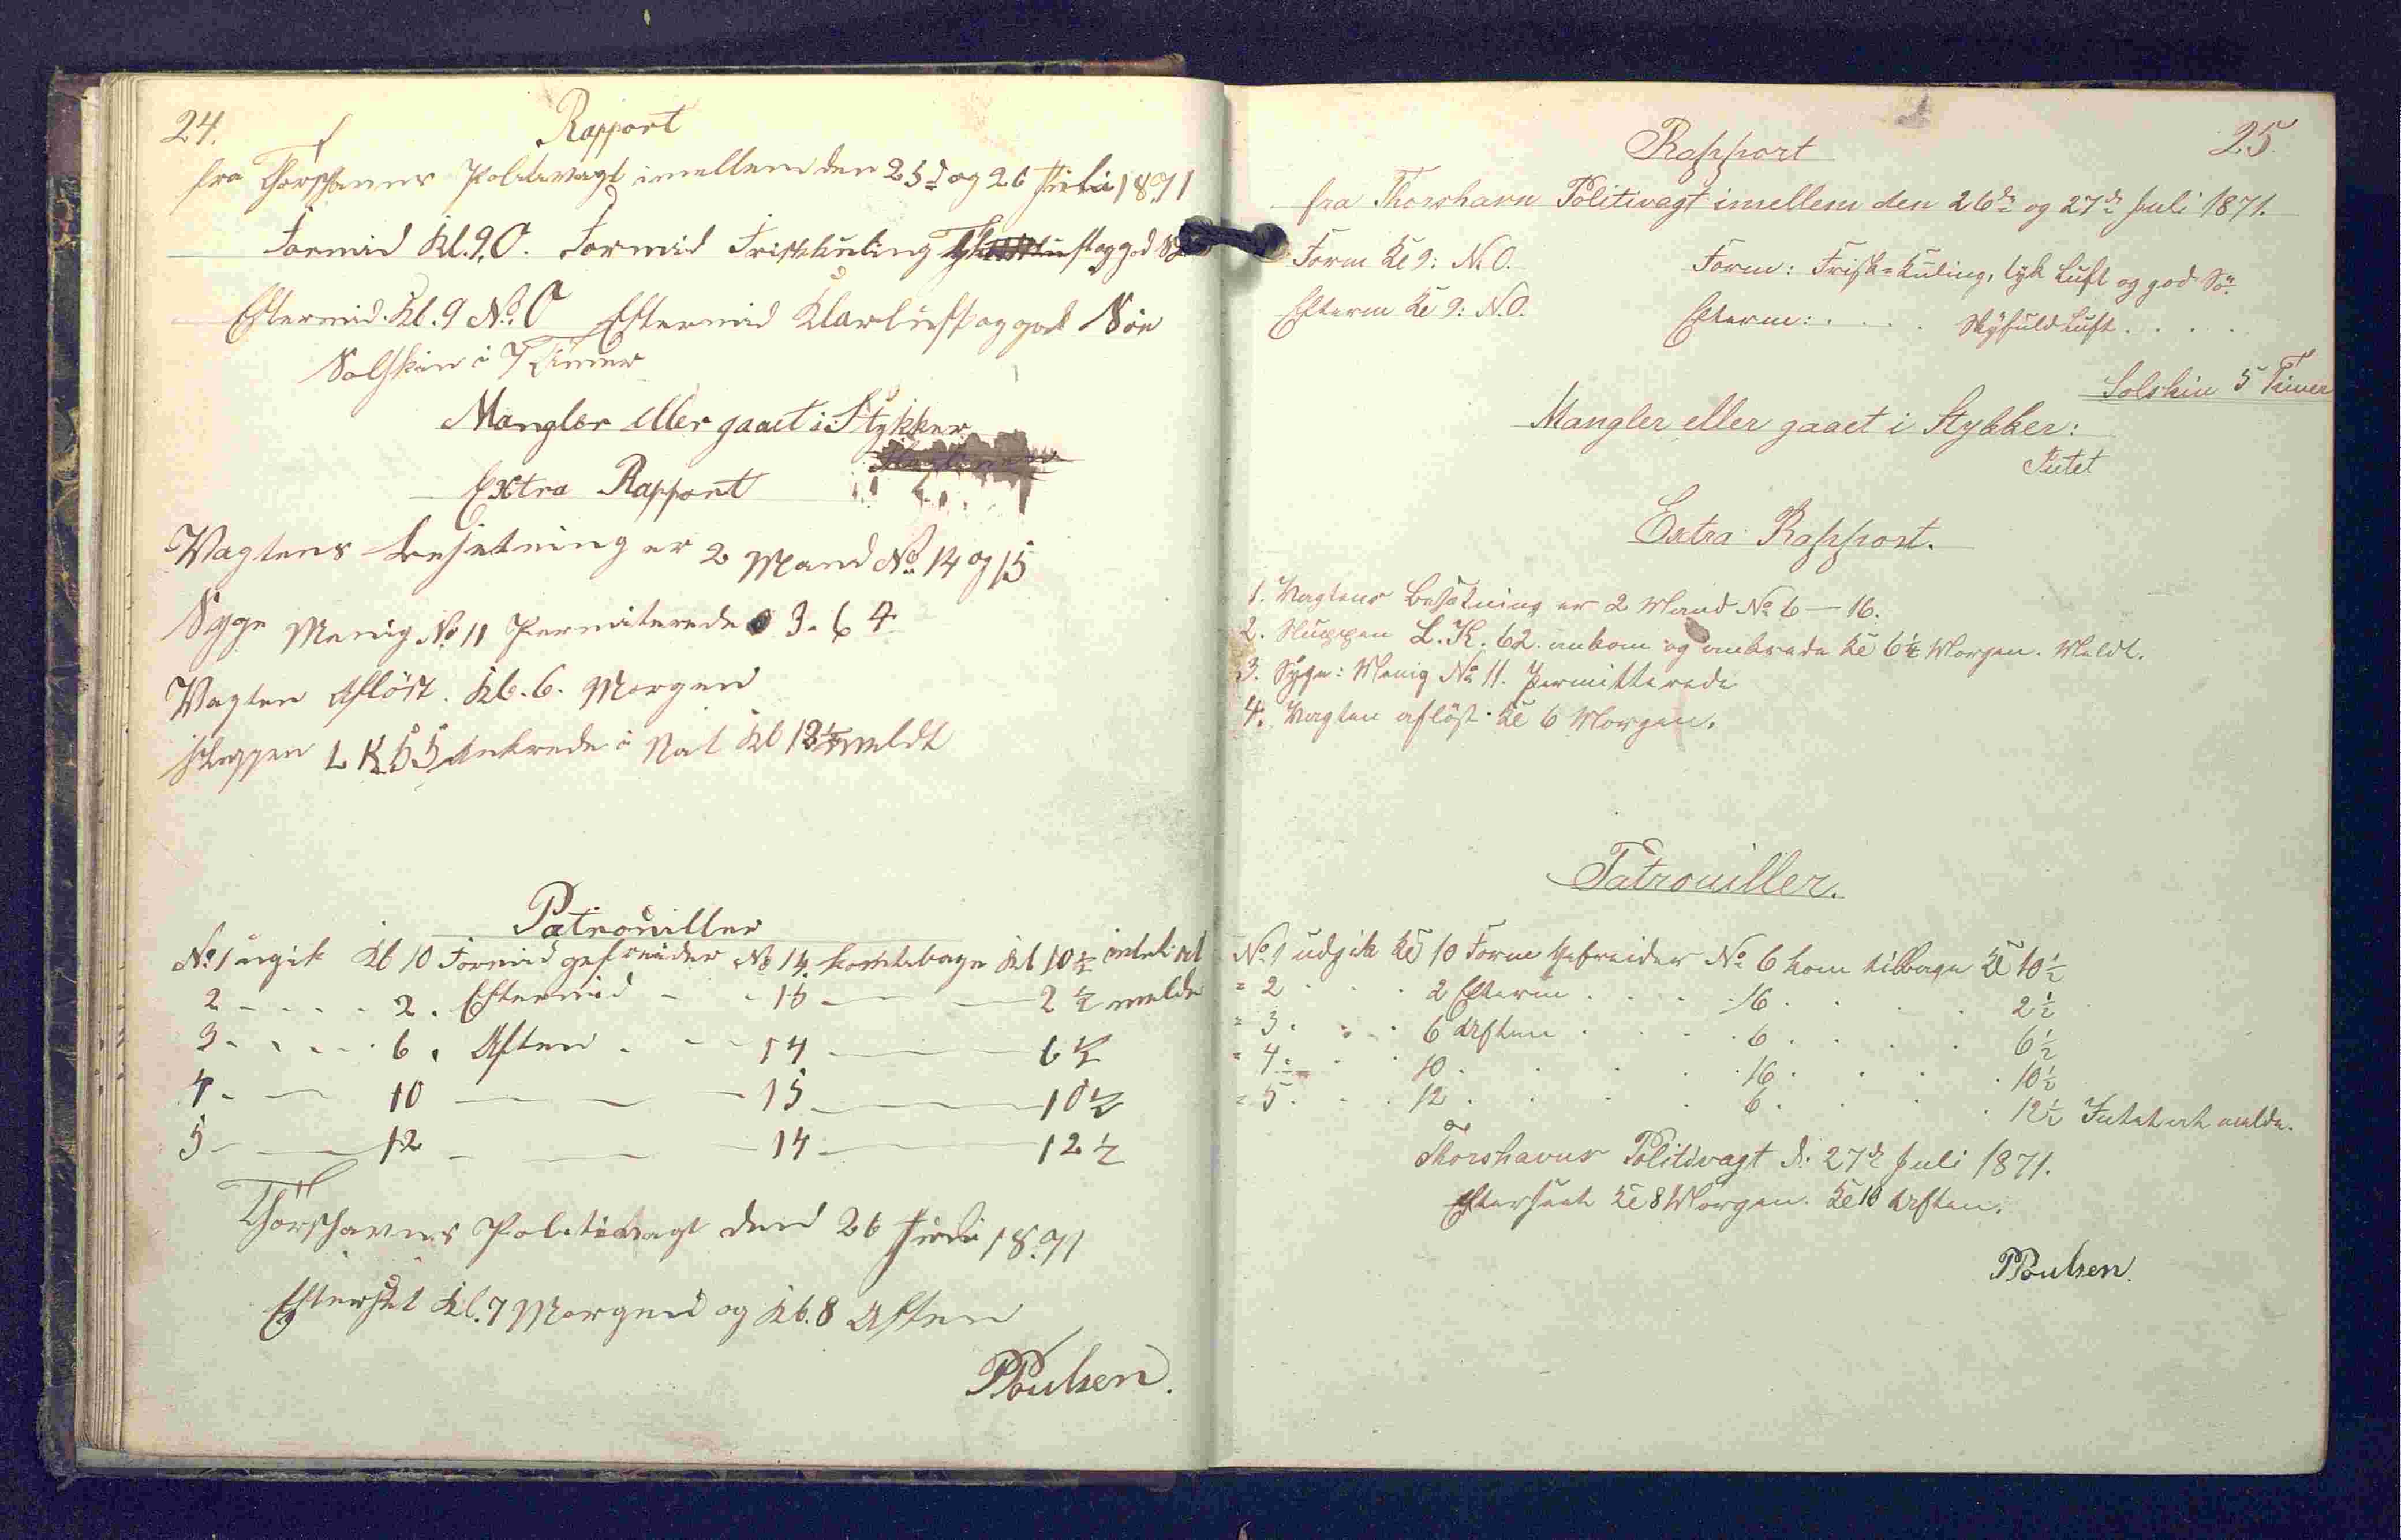 24.
Rapport
fra Thorshavns Politivagt imellem den 25d og 26 Juli 1871
Formid Kl. 9. O. Formid Frisk kuling Tyk Luft og god Sö
Eftermid. Kl. 9 N.O Eftermid Klarluft og god Söe
Solskin i 7 Timer
Mangler eller gaaet i Stykker
Extra Rapport
Vagtens besætning er 2 Mand No 14 og 15
Syge Menig No 11 Permiterede 3. 6 4
Vagten Aflöst. Kl. 6. Morgen
Sluppen L K 55 Ankrede i Nat Kl 12½ meldt
Patrouiller
No 1 ugik Kl 10 Formid gefreider No 14. kom tebage Kl 10½ intet at
2 - - - - 2. Eftermid - - 15 — — 2½ melde
3 - - - - 6. Aften - - 14 — — 6½
4 - — 10 — — 15 — 10½
5 - — 12 - — 14 — 12½
Thorshavns Politivagt den 26 Juli 1871
Efterset Kl. 7 Morgen og Kl. 8 Aften
PPoulsen.
25.
Rapport
fra Thorshavn Politivagt imellem den 26de og 27de Juli 1871.
Form Kl 9: N.O. Form: Frisk=Kuling, tyk Luft og god Sö.
Efterm Kl 9: N.O. Efterm: . . . . Skÿfuld Luft . . . .
Solskin 5 Timer
Mangler eller gaaet i Stykker:
Intet
Extra Rapport.
1. Vagtens Besætning er 2 Mand No 6 — 16.
2. Sluppen L. K. 62. ankom og ankrede Kl 6½ Morgen. Meldt.
3. Syge: Menig No 11. Permitterede
4. Vagten aflöst Kl 6 Morgen.
Patrouiller.
No 1 udgik Kl 10 Form Gefreider No 6 kom tilbage Kl 10½
" 2 . . . 2 Efterm . . . 16 . . . 2½
" 3 . . . 6 Aften . . . 6 . . . 6½
" 4 . . . 10 . . . 16 . . . 10½
" 5 . . . 12 . . . 6 . . . 12½ Intet at melde.
Thorshavns Politivagt d. 27de Juli 1871.
Efterseet Kl 8 Morgen. Kl 10 Aften.
PPoulsen.